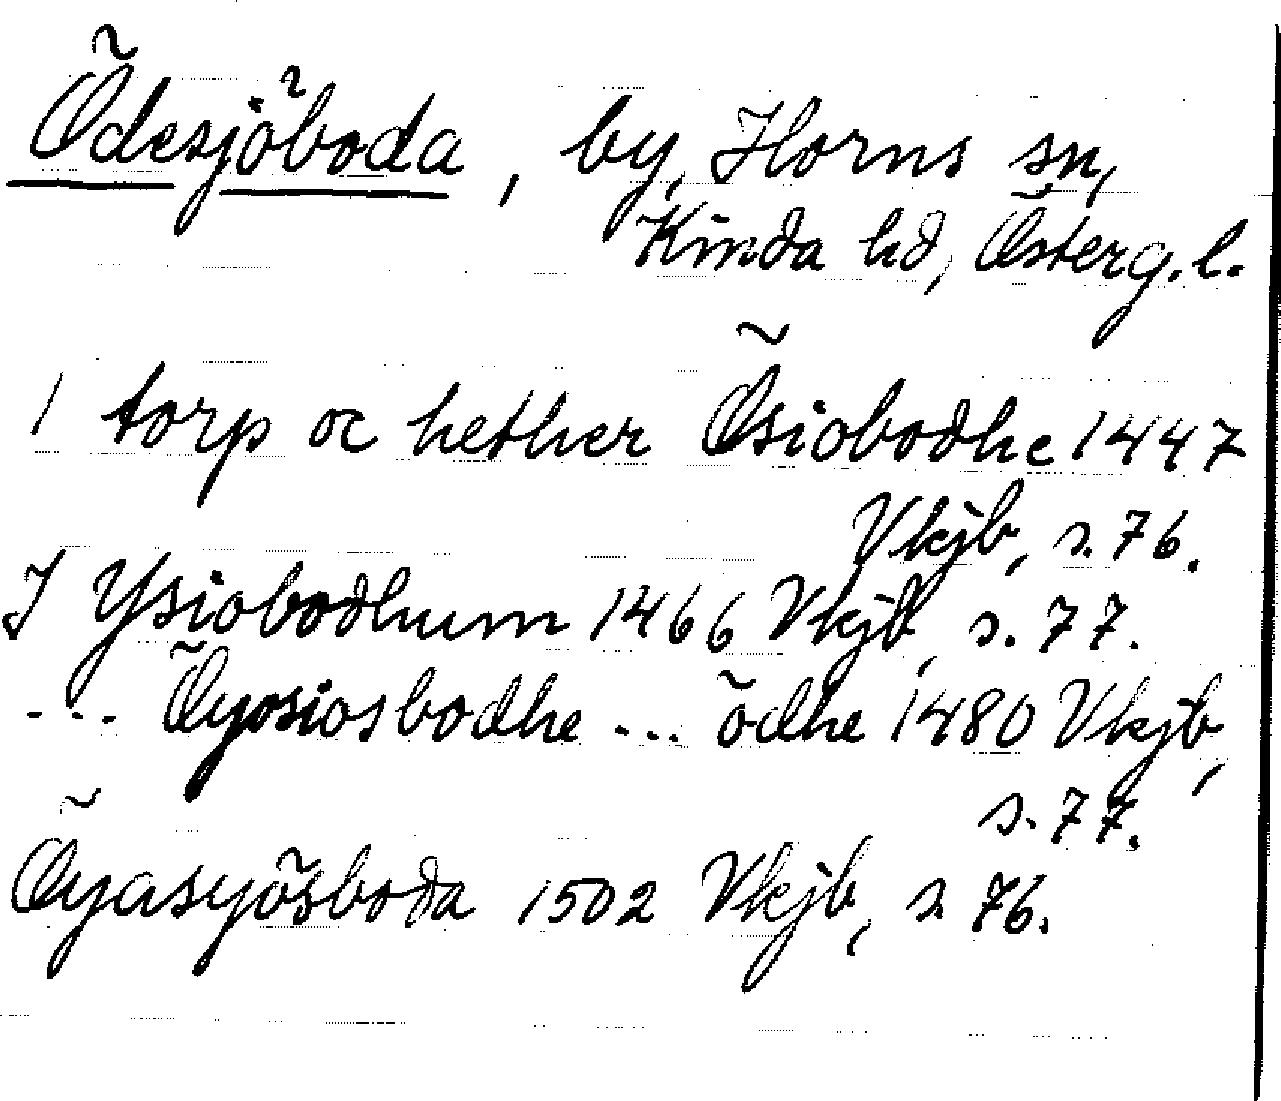 Ödesjöboda, by, Horns sn,
Kinda hd, Österg. l.
1 torp oc hether Ösiobodhe 1447
Vkjb, s. 76.
J Ysiobodhum 1466 Vkjb, s. 77.
--- Öyosiosbodhe ... ödhe 1480 Vkjb,
s. 77.
Öyasyösboda 1502 Vkjb, s 76.